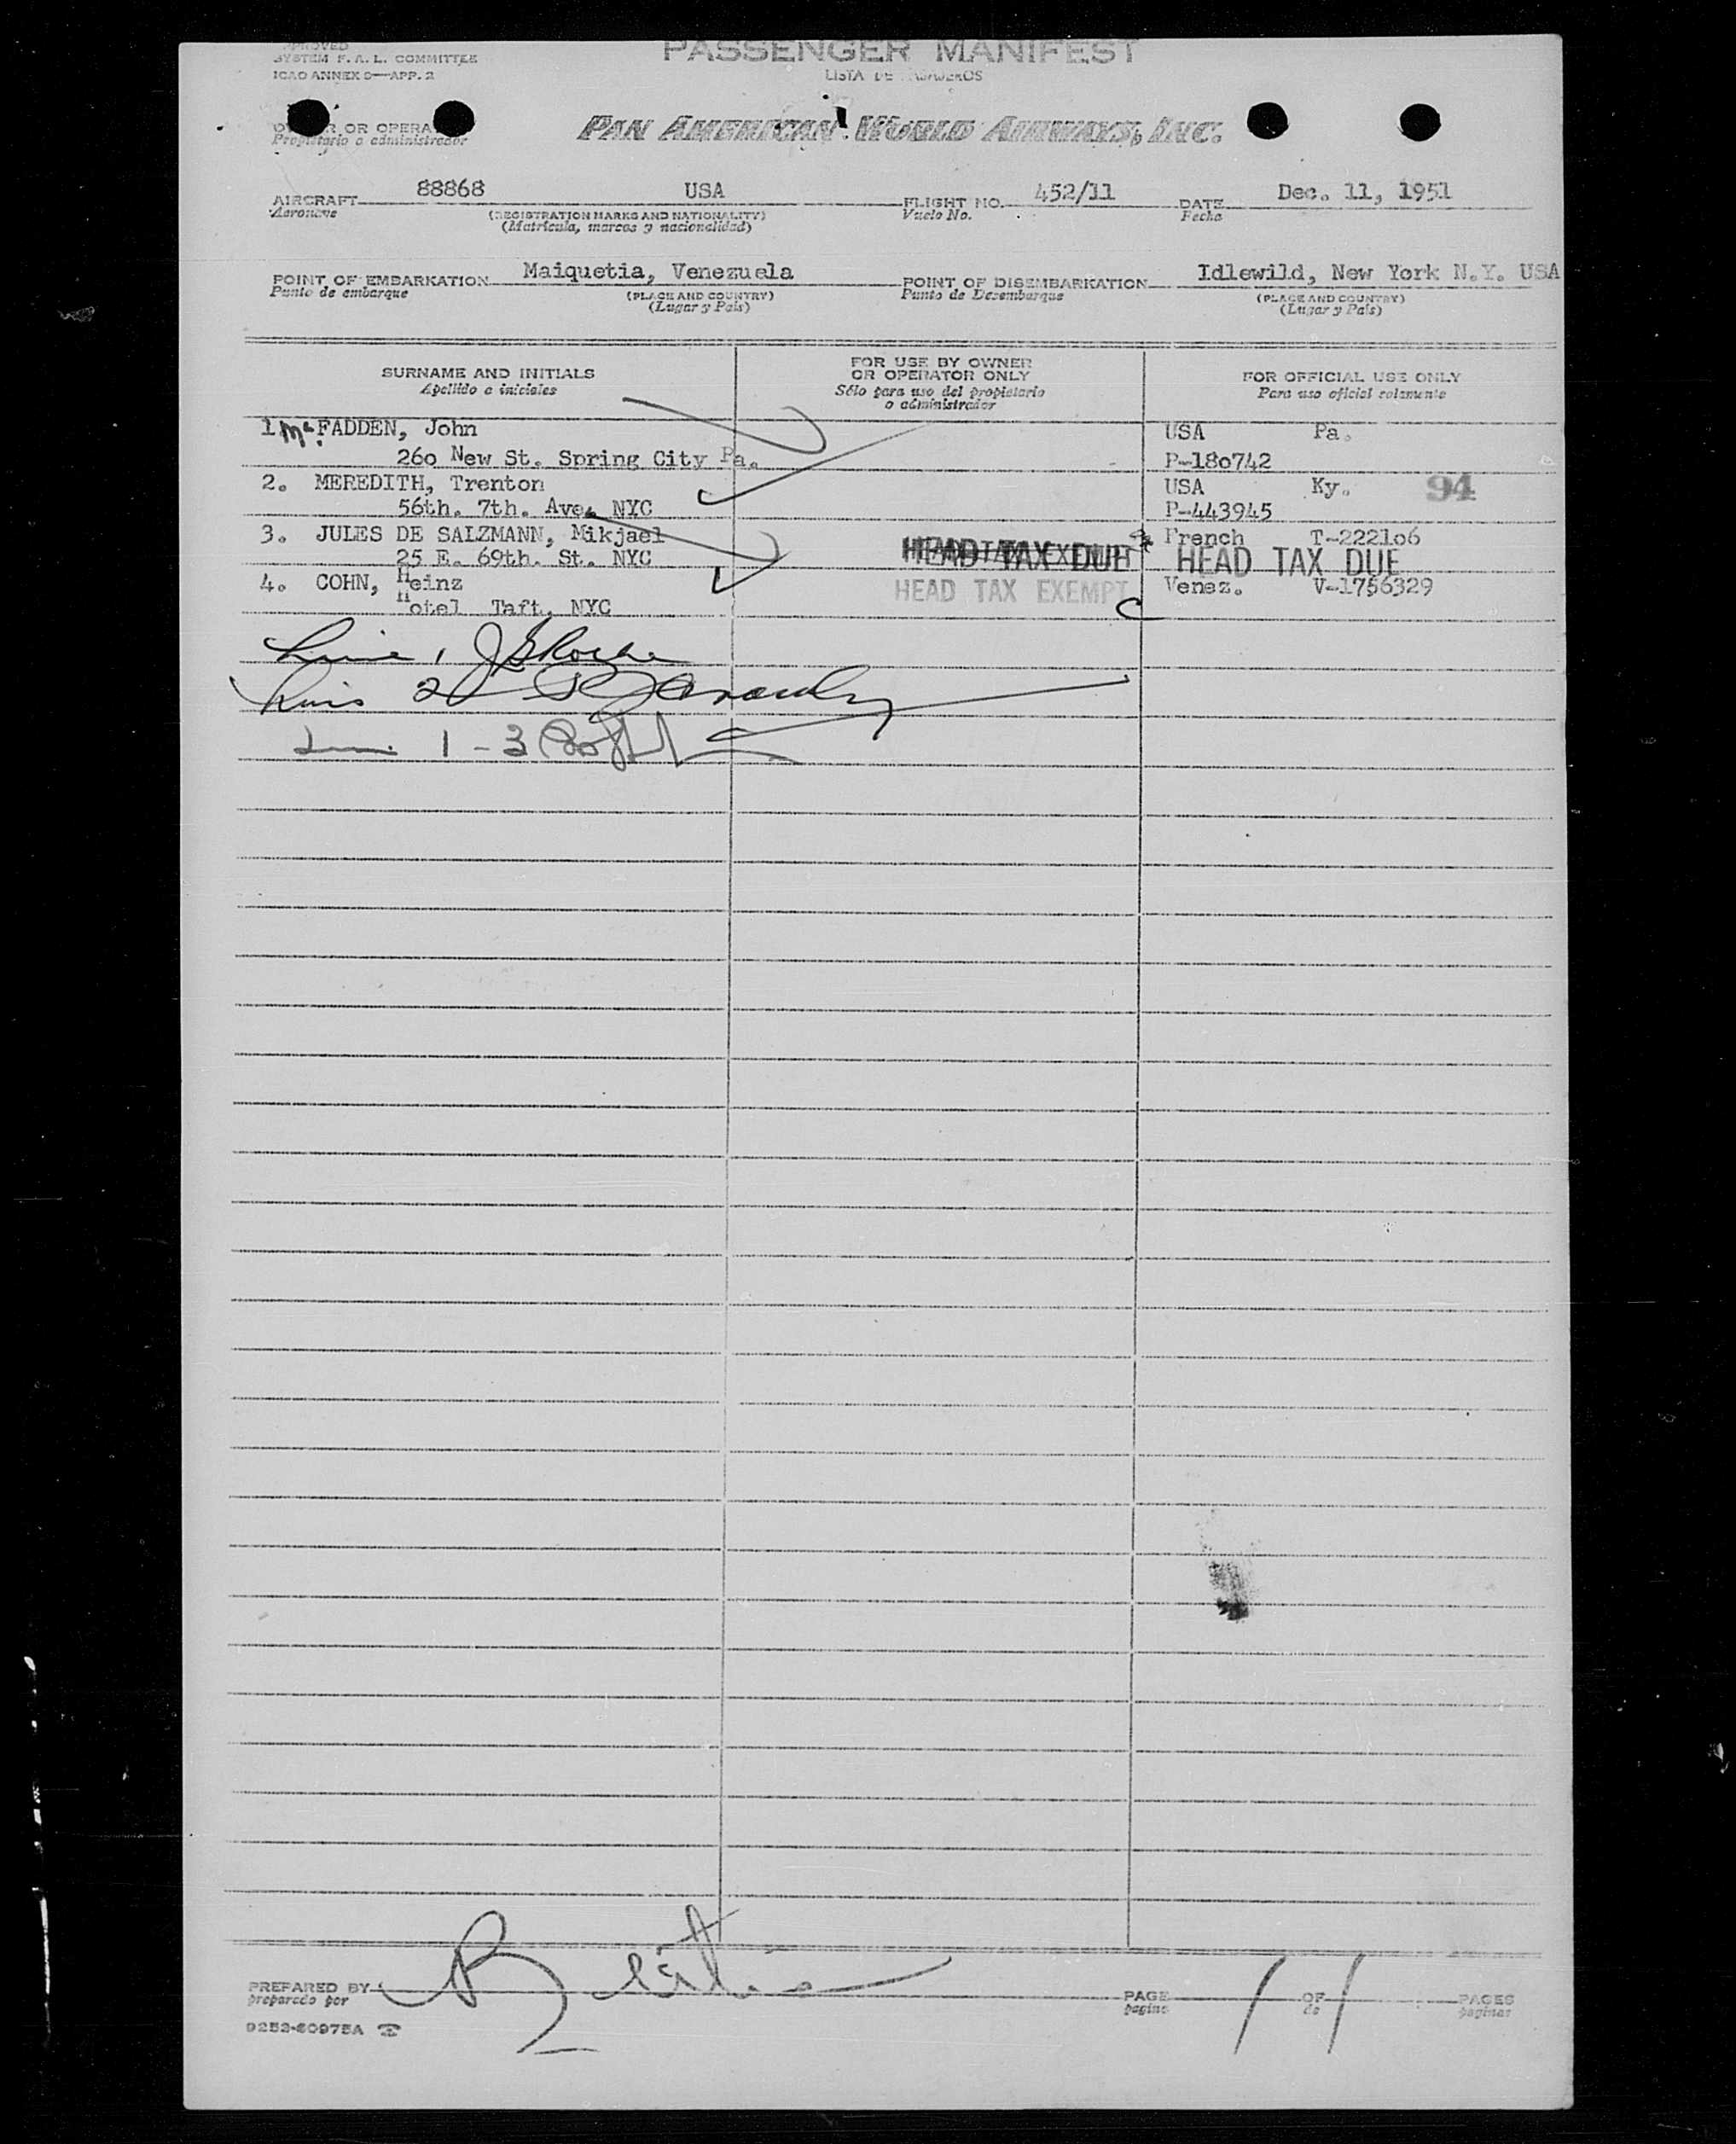 PROVED
SYSTEM F. A. L. COMMITTEE
ICAO ANNEX 9—APP. 2
PASSENGER MANIFEST
LISTA DE PASAJEROS
OWNER OR OPERATOR
Propietario o administrador
PAN AMERICAN WORLD AIRWAYS, INC.
AIRCRAFT 88868 USA FLIGHT NO. 452/11 DATE Dec. 11, 1951
Aeronave (REGISTRATION MARKS AND NATIONALITY) Vuelo No. Fecha
(Matrícula, marcas y nacionalidad)
POINT OF EMBARKATION Maiquetia, Venezuela POINT OF DISEMBARKATION Idlewild, New York N.Y. USA
Punto de embarque (PLACE AND COUNTRY) Punto de Desembarque (PLACE AND COUNTRY)
(Lugar y País) (Lugar y País)
SURNAME AND INITIALS FOR USE BY OWNER OR OPERATOR ONLY FOR OFFICIAL USE ONLY
Apellido e iniciales Sólo para uso del propietario o administrador Para uso oficial solamente
1. Mc FADDEN, John USA Pa.
260 New St. Spring City Pa. P-180742
2. MEREDITH, Trenton USA Ky. 94
56th. 7th. Ave. NYC P-443945
3. JULES DE SALZMANN, Mikjael HEAD TAX EXEMPT HEAD TAX DUE French T-222106
25 E. 69th. St. NYC HEAD TAX DUE
4. COHN, Heinz HEAD TAX EXEMPT Venez. V-1756329
Hotel Taft, NYC
Line 1
Line 2
Line 1-3
PREPARED BY PAGE 1 OF 1 PAGES
preparado por pagina de paginas
9253-60975A